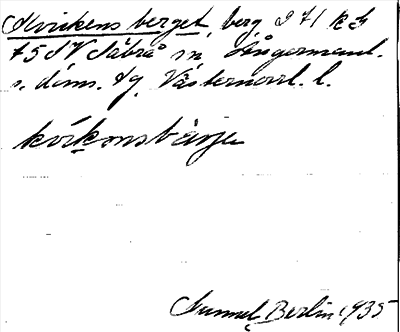 Kvickens berget, berg 271 k I
75 SV Säbrå sn Ångermanl.
s. dms. dg. Västernorrl. l.
kvíkonsbärje
Gunnel Berlin 1935